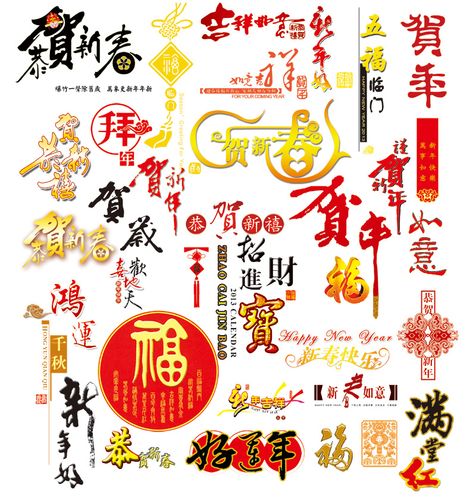 恭賀新春
爆竹一聲除舊歲 萬象更新年年新
福
吉祥如意
新年好
五福臨門
賀年
如意吉祥
FOR YOUR COMING YEAR
恭賀新禧
拜年
賀新春
賀新年
謹賀新年
新年快樂
萬事如意
恭賀新春
賀歲
歡天喜地
恭賀新禧
賀年
福
如意
招財進寶
ZHAO CAI JIN BAO
2013 CALENDAR
鴻運
千秋
HONG YUN QIAN QIU
福
Happy New Year
新春快乐
恭賀新年
新年好
新春如意
恭賀新春
好運年
福
滿堂红